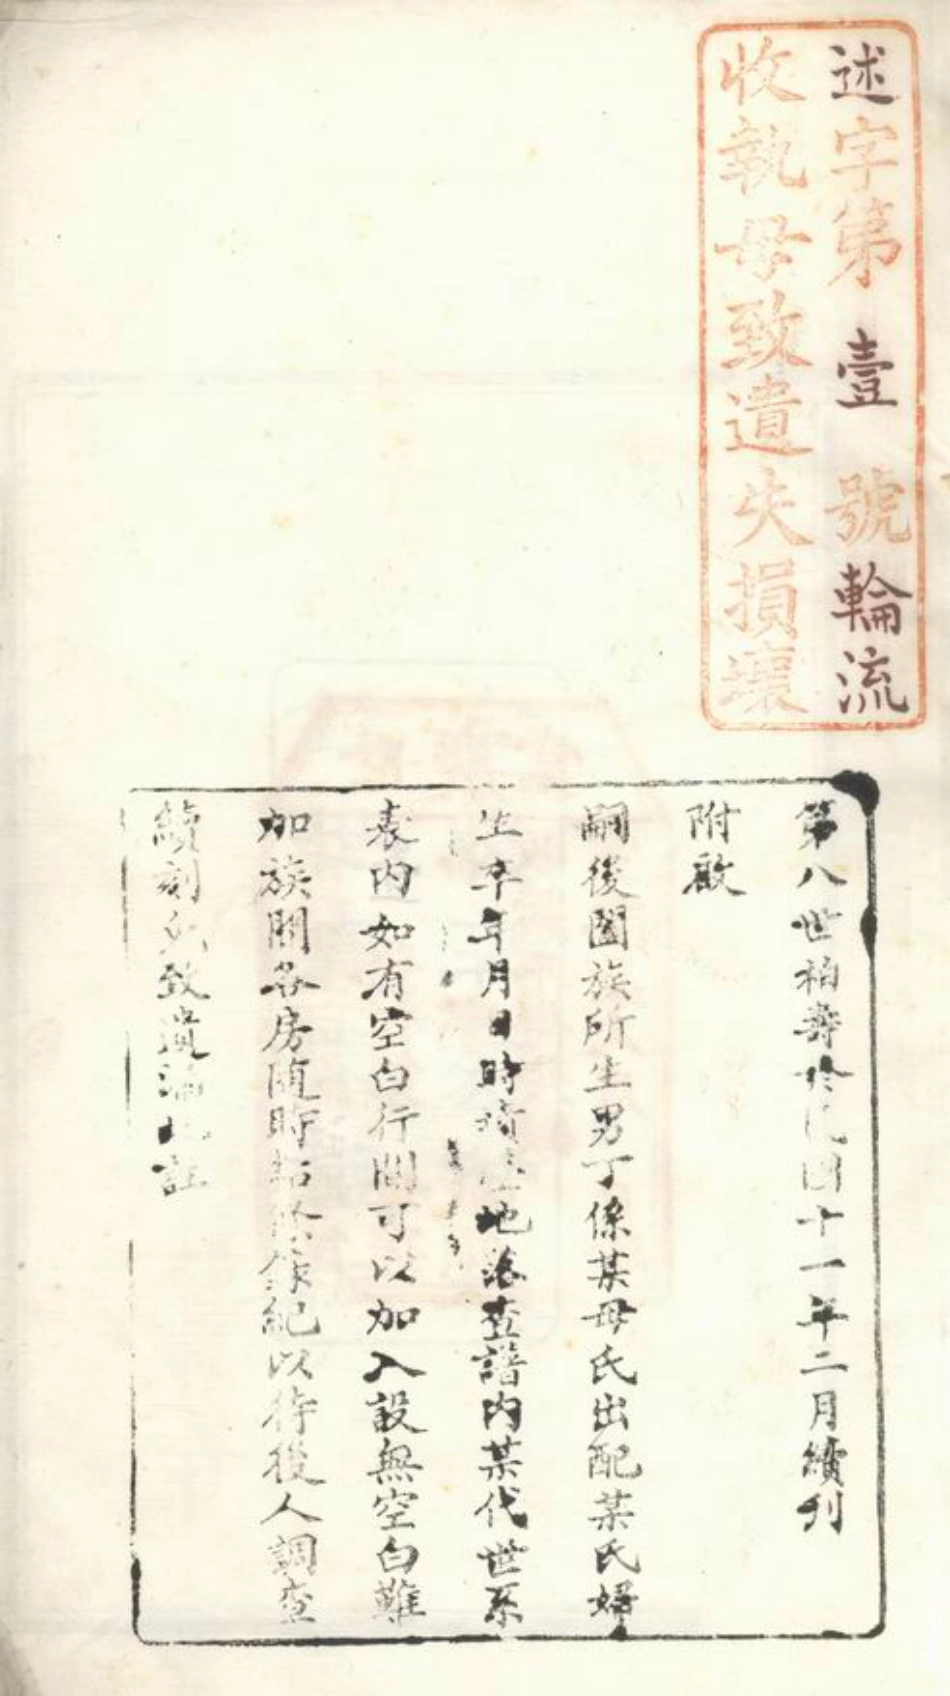 述字第壹號輪流
收執毋致遺失損壞
第八世柏壽於民國十一年二月續刊
附啟
嗣後闔族所生男丁係某母氏出配某氏婦
生卒年月日時墳地落查譜內某代世系
表內如有空白行間可以加入設無空白難
加族關各房随時錄紀以待後人調查
續刻免致遺漏此註